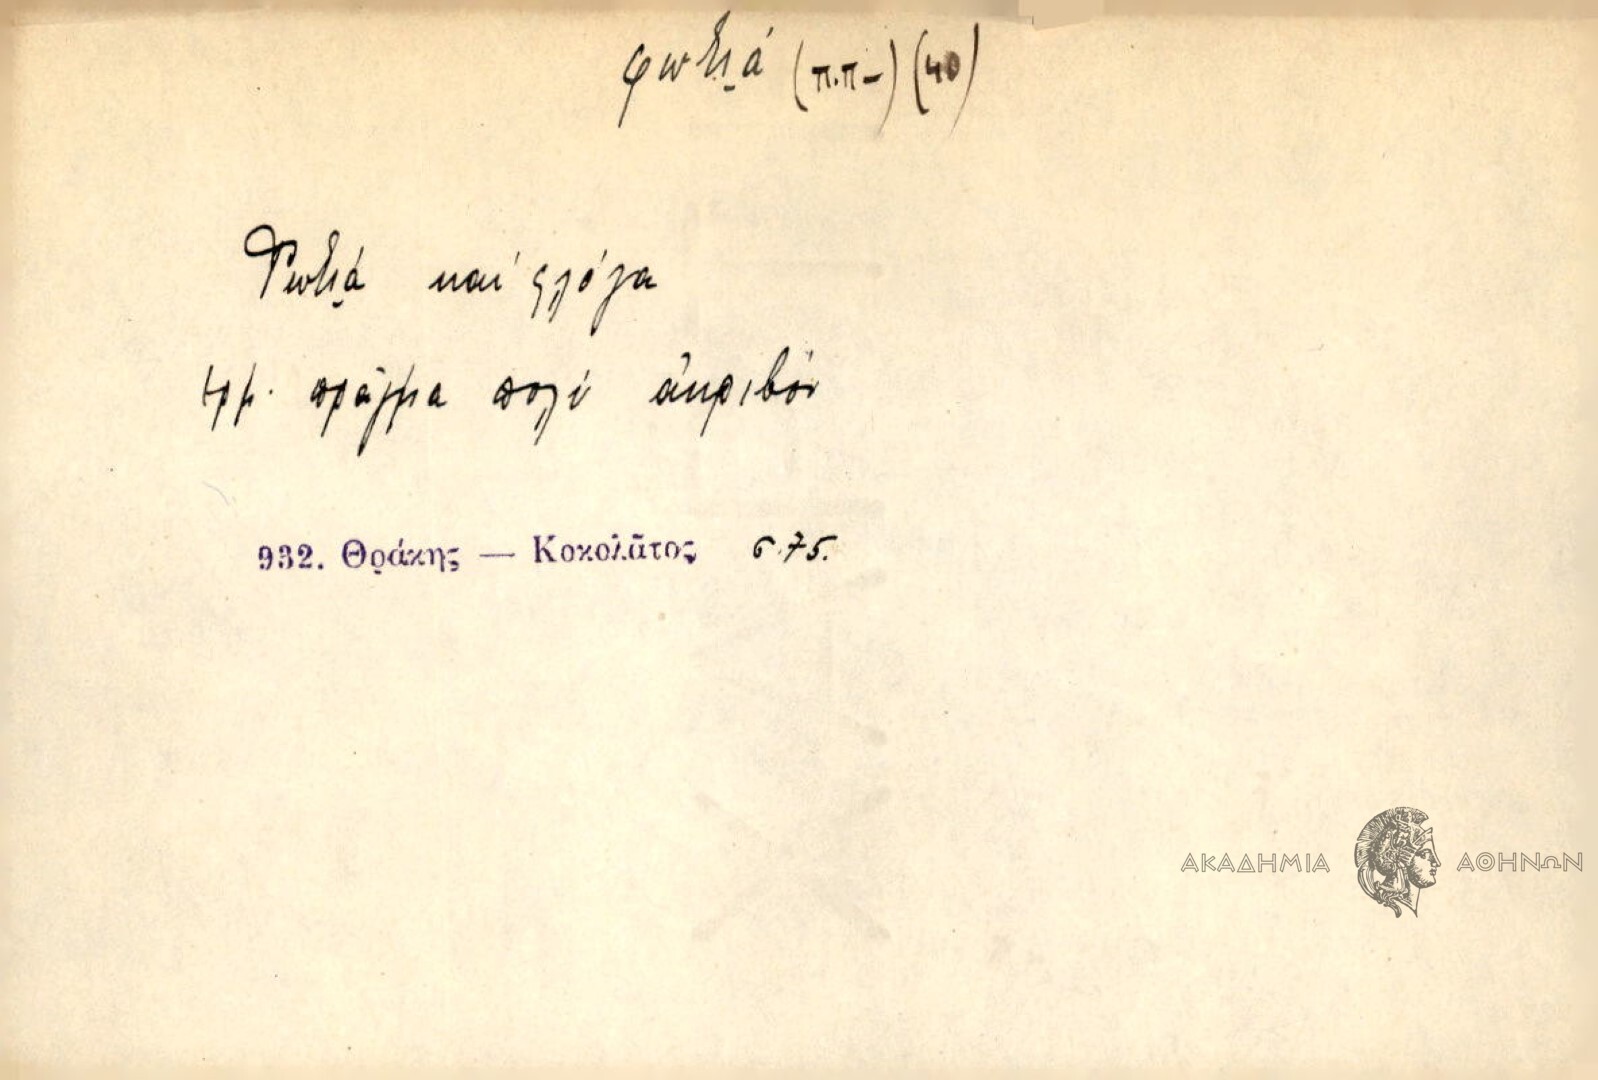 φωτιά (π.π-) (40)
Φωτιά καί φλόγα
Ἑρμ. πρᾶγμα πολύ ἀκριβόν
932. Θράκης — Κοκολᾶτος σ. 75.
ΑΚΑΔΗΜΙΑ ΑΘΗΝΩΝ